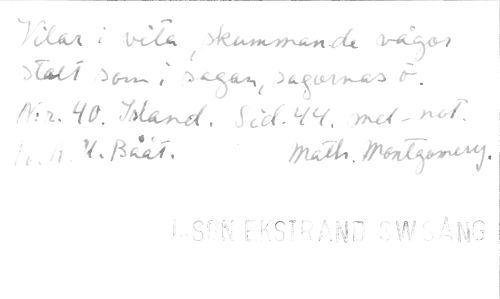 Vilar i vita, skummande vågor
stolt som i sagan, sagornas ö.
N:r. 40. Island. Sid. 44. mel-not.
A. U. Bååt. Math. Montgomery.
SON EKSTRAND SW SÅNG